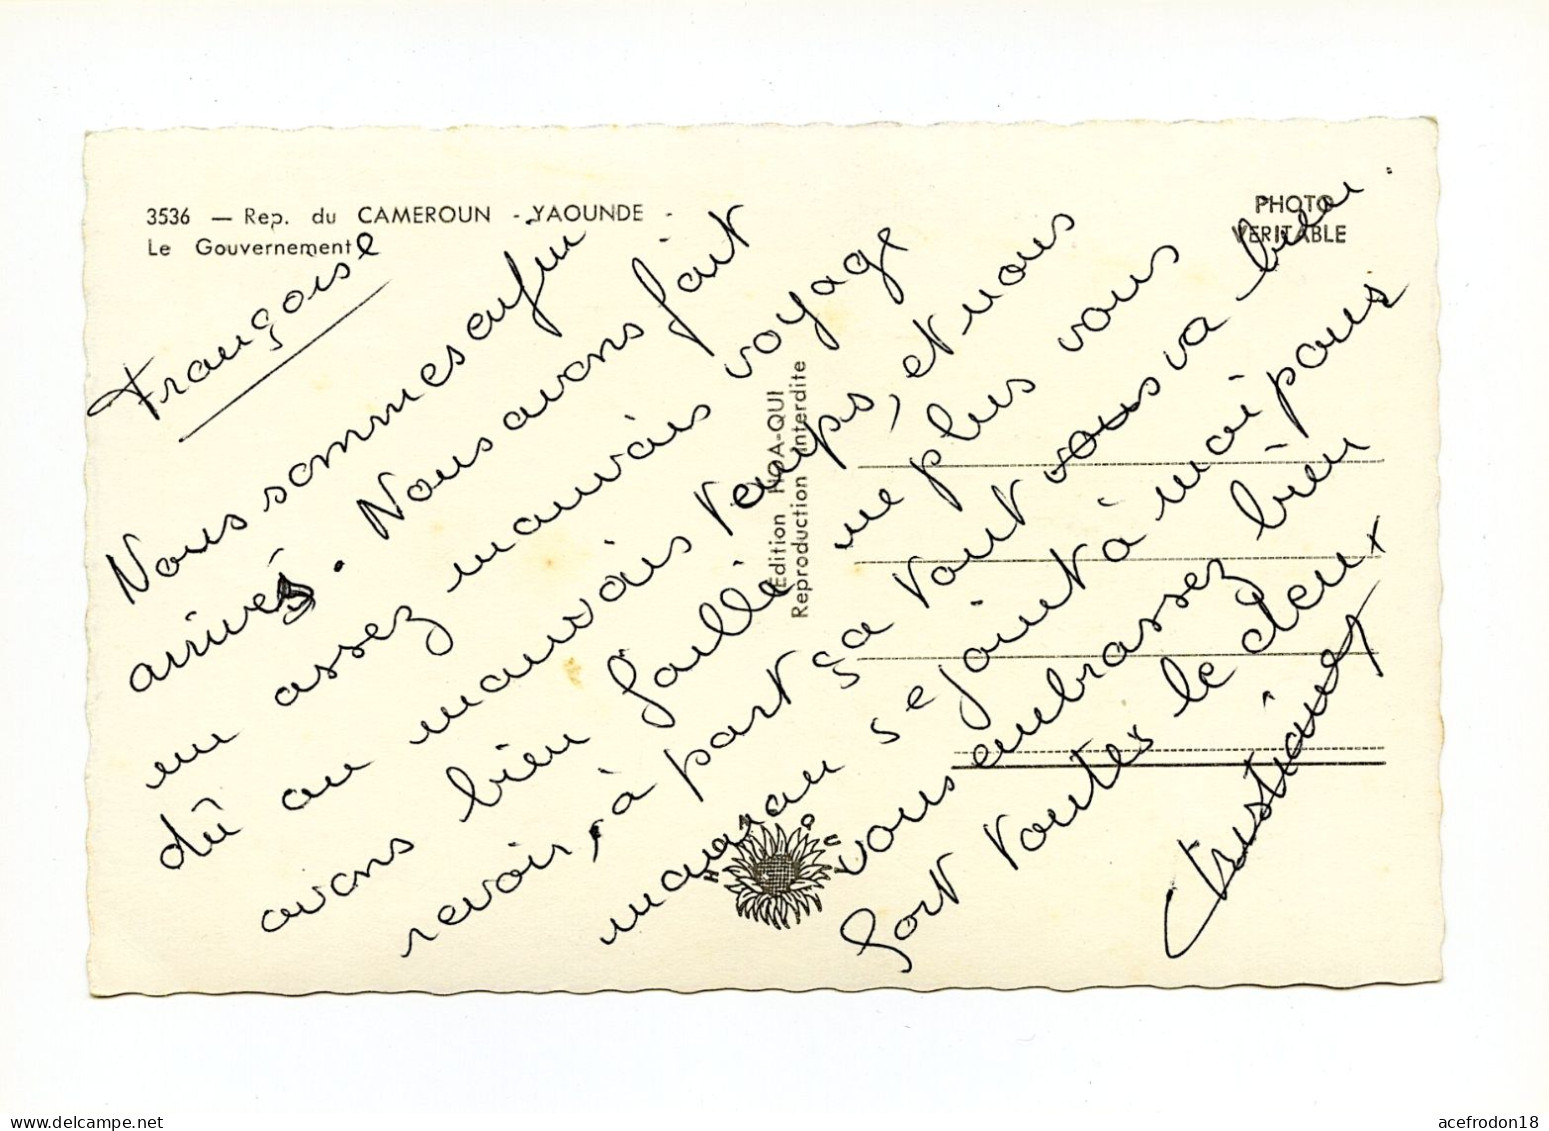 3536 — Rep. du CAMEROUN - YAOUNDE -
Le Gouvernement
PHOTO
VERITABLE
Françoise
Nous sommes enfin
arrivés. Nous avons fait
un assez mauvais voyage
dû au mauvais temps, et nous
avons bien failli ne plus vous
revoir, à part ça tout vous va bien.
maman se joint à moi pour
vous embrassez bien
fort toutes le deux
Christiane
Edition HOA-QUI
Reproduction interdite
HOA QUI
acefrodon18